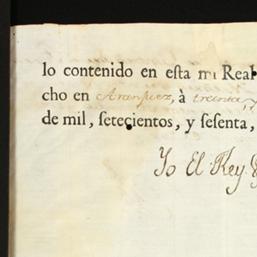 lo contenido en esta mi Real
cho en Aranjuez, à treinta, y
de mil, setecientos, y sesenta,
Yo El Rey